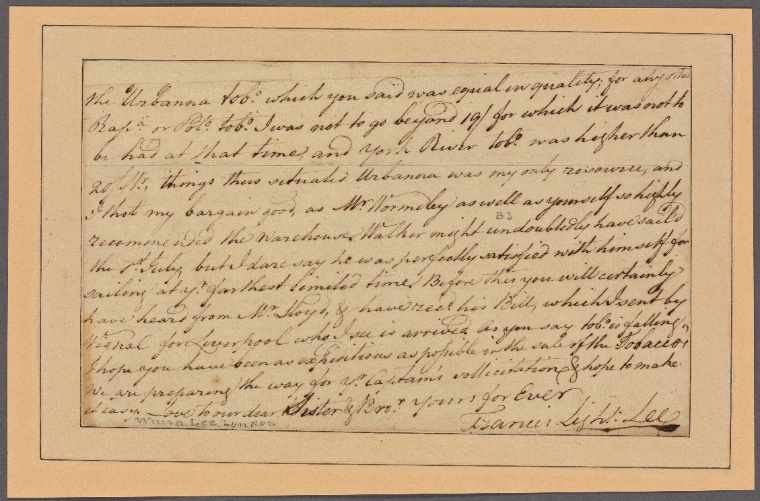 the Urbanna tobo. which you said was equal in quality; for any other
Rapa. or Poto. tobo. I was not to go beyond 19/ for which it was not to
be had at that time, and York River tobo. was higher than
20/ Str, things thus situated Urbanna was my only resourse, and
I thot my bargain good, as Mr. Wormeley as well as yourself so highly
recommended the Warehouse. Walker might undoubtedly have sail'd
B3
the 1st. July, but I dare say he was perfectly satisfied with himself for
sailing at yr. farthest limited time. Before this you will certainly
have heard from Mr. Lloyd, & have recd. his Bill, which I sent by
for Liverpool who I see is arrived. as you say tobo. is falling,
I hope you have been as expeditious as possible in the sale of the Tobaccos
We are preparing the way for yr. Captain's sollicitation, & hope to make
it easy. Love to our dear Sister & Bror. yours for Ever
Francis Light. Lee
Willm. Lee. London